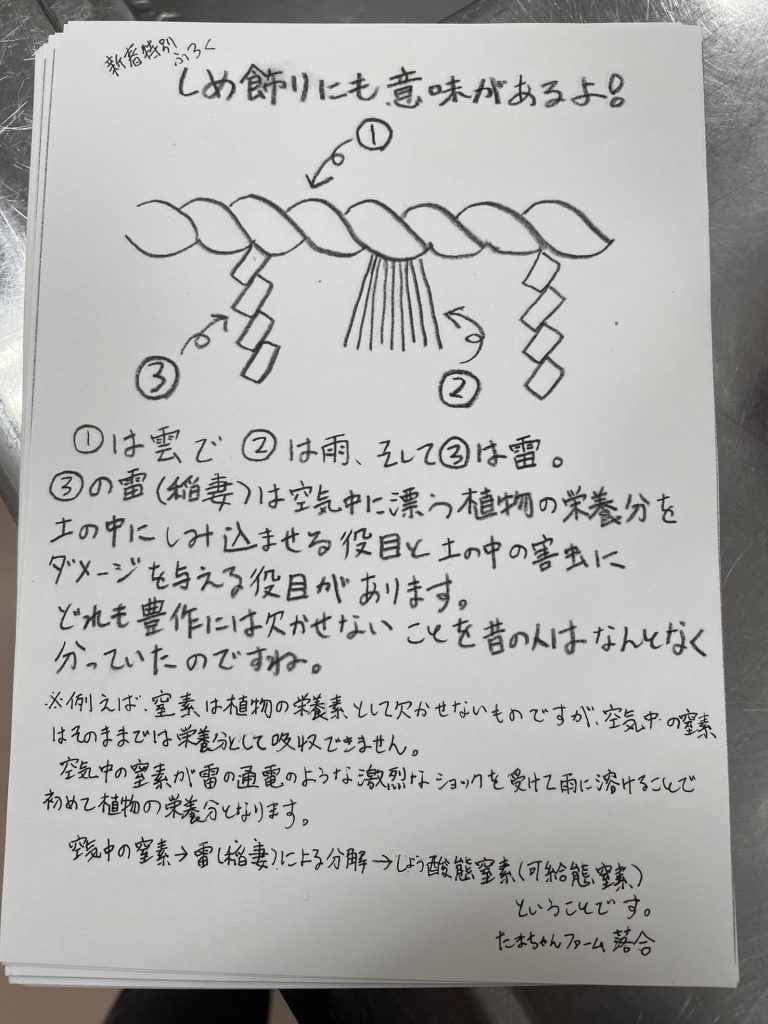 新春特別
ふろく
しめ飾りにも意味があるよ!
①
③
②
①は雲で ②は雨、そして③は雷。
③の雷(稲妻)は空気中に漂う植物の栄養分を
土の中にしみ込ませる役目と土の中の害虫に
ダメージを与える役目があります。
どれも豊作には欠かせないことを昔の人はなんとなく
分っていたのですね。
※例えば、窒素は植物の栄養素として欠かせないものですが、空気中の窒素
はそのままでは栄養分として吸収できません。
空気中の窒素が雷の通電のような激烈なショックを受けて雨に溶けることで
初めて植物の栄養分となります。
空気中の窒素→雷(稲妻)による分解→しょう酸態窒素(可給態窒素)
ということです。
たまちゃんファーム 落合